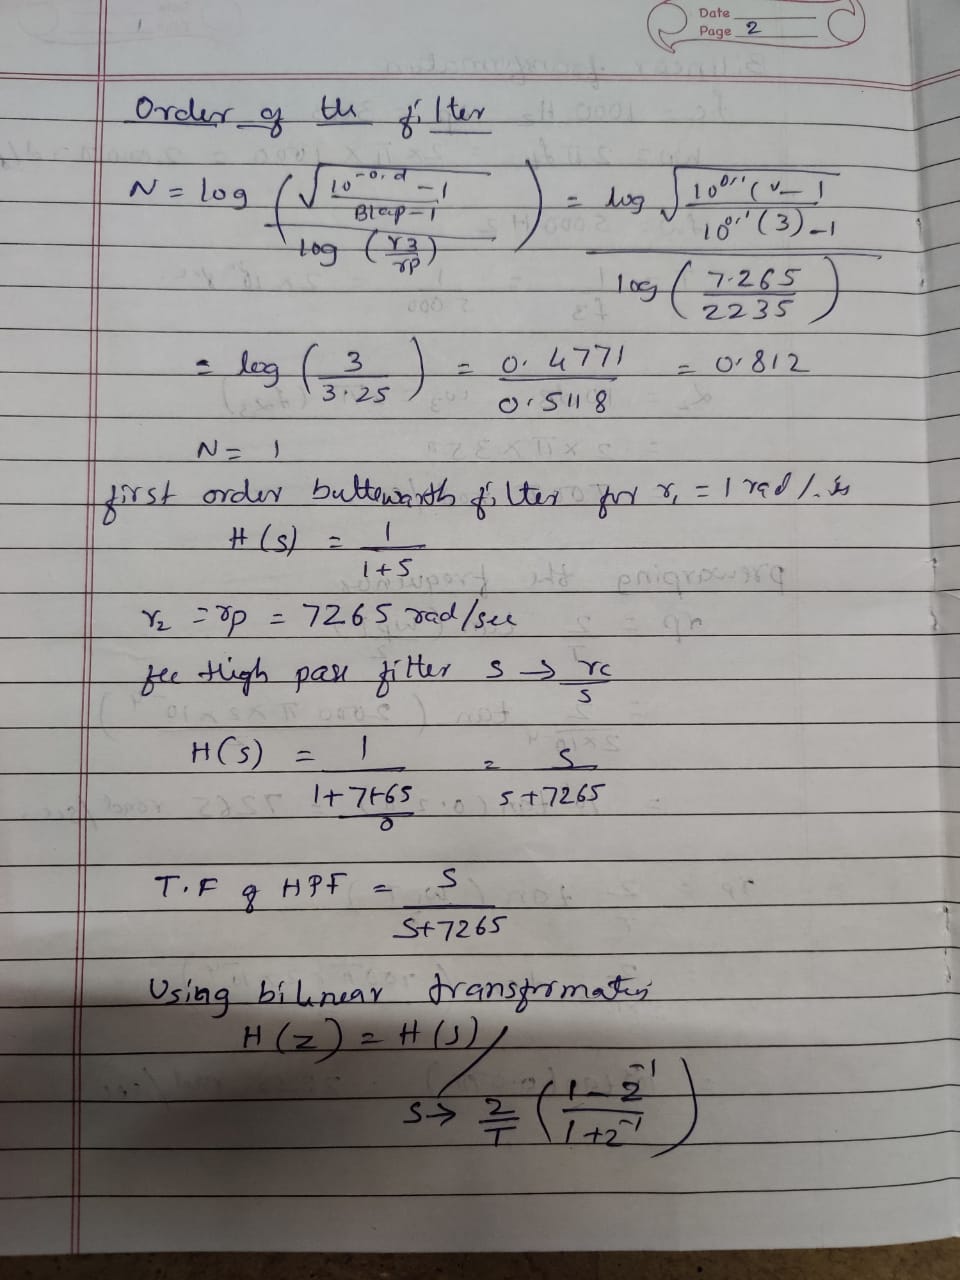 Date
Page 2
Order of the filter
N = log (√(10^-0.d - 1 / B1αp - 1) / log (r3/rp)) = log √(10^0.1( - 1 / 10^0.1(3) - 1) / log (7.265 / 2235)
= log (3 / 3.25) = 0.4771 / 0.5118 = 0.812
N = 1
first order buttewarth filter for r, = 1 rad/
H(s) = 1 / 1+s
r2 = rp = 7265 rad/sec
High pass filter s → rc / s
H(s) = 1 / 1+7+65/0 = s / s+7265
T.F of HPF = S / S+7265
Using bilinear transformation
H(z) = H(s)/
s→ 2/T (1-z^-1 / 1+z^-1)